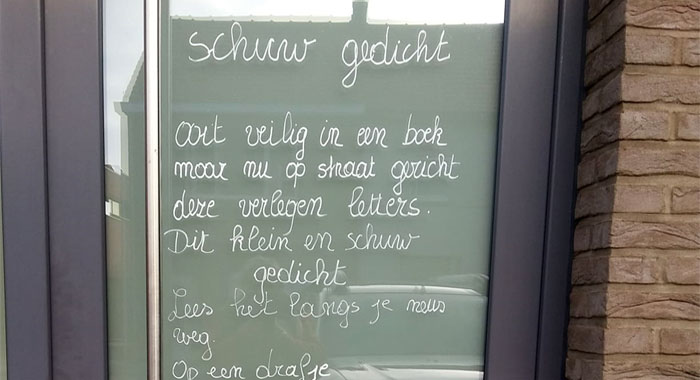 schuw gedicht
ooit veilig in een boek
maar nu op straat gericht
deze verlegen letters.
Dit klein en schuw
gedicht
Lees het langs je neus
weg.
Op een drafje